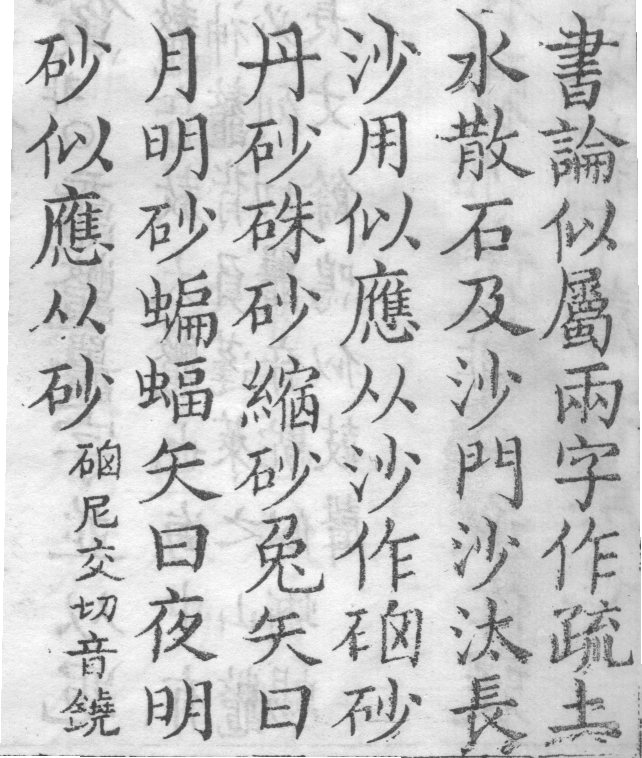 書論似屬兩字作疏土
水散石及沙門沙汰長
沙用似應从沙作硇砂
丹砂硃砂縮砂兔矢曰
月明砂蝙蝠矢曰夜明
砂似應从砂硇尼交切音鐃